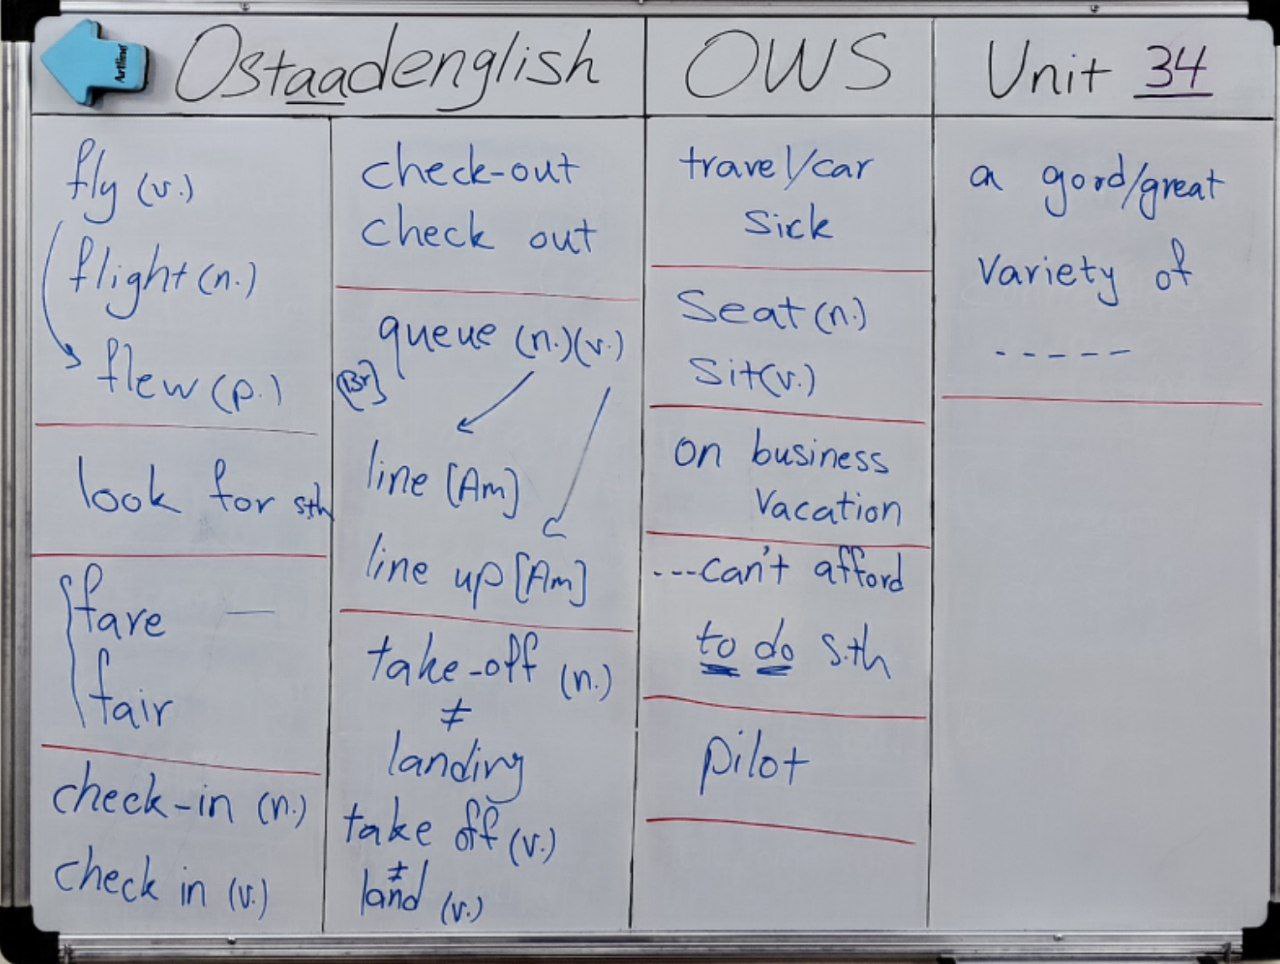 Ostaadenglish
OWS
Unit 34
Artline
fly (v.)
flight (n.)
flew (p.)
look for sth
fare
fair
check-in (n.)
check in (v.)
check-out
check out
queue (n.)(v.)
[Br]
line [Am]
line up [Am]
take-off (n.)
≠
landing
take off (v.)
≠
land (v.)
travel/car
sick
Seat (n.)
Sit (v.)
on business
vacation
---can't afford
to do s.th
pilot
a good/great
variety of
-----